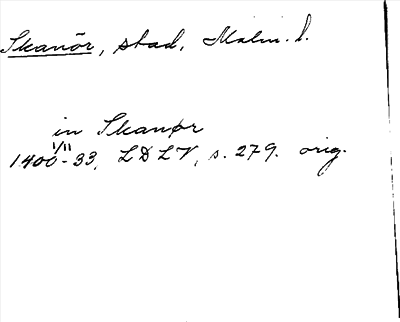 Skanör, stad, Malm. l.
in Skanør
1/11
1400-33, LDLV, s. 279. orig.